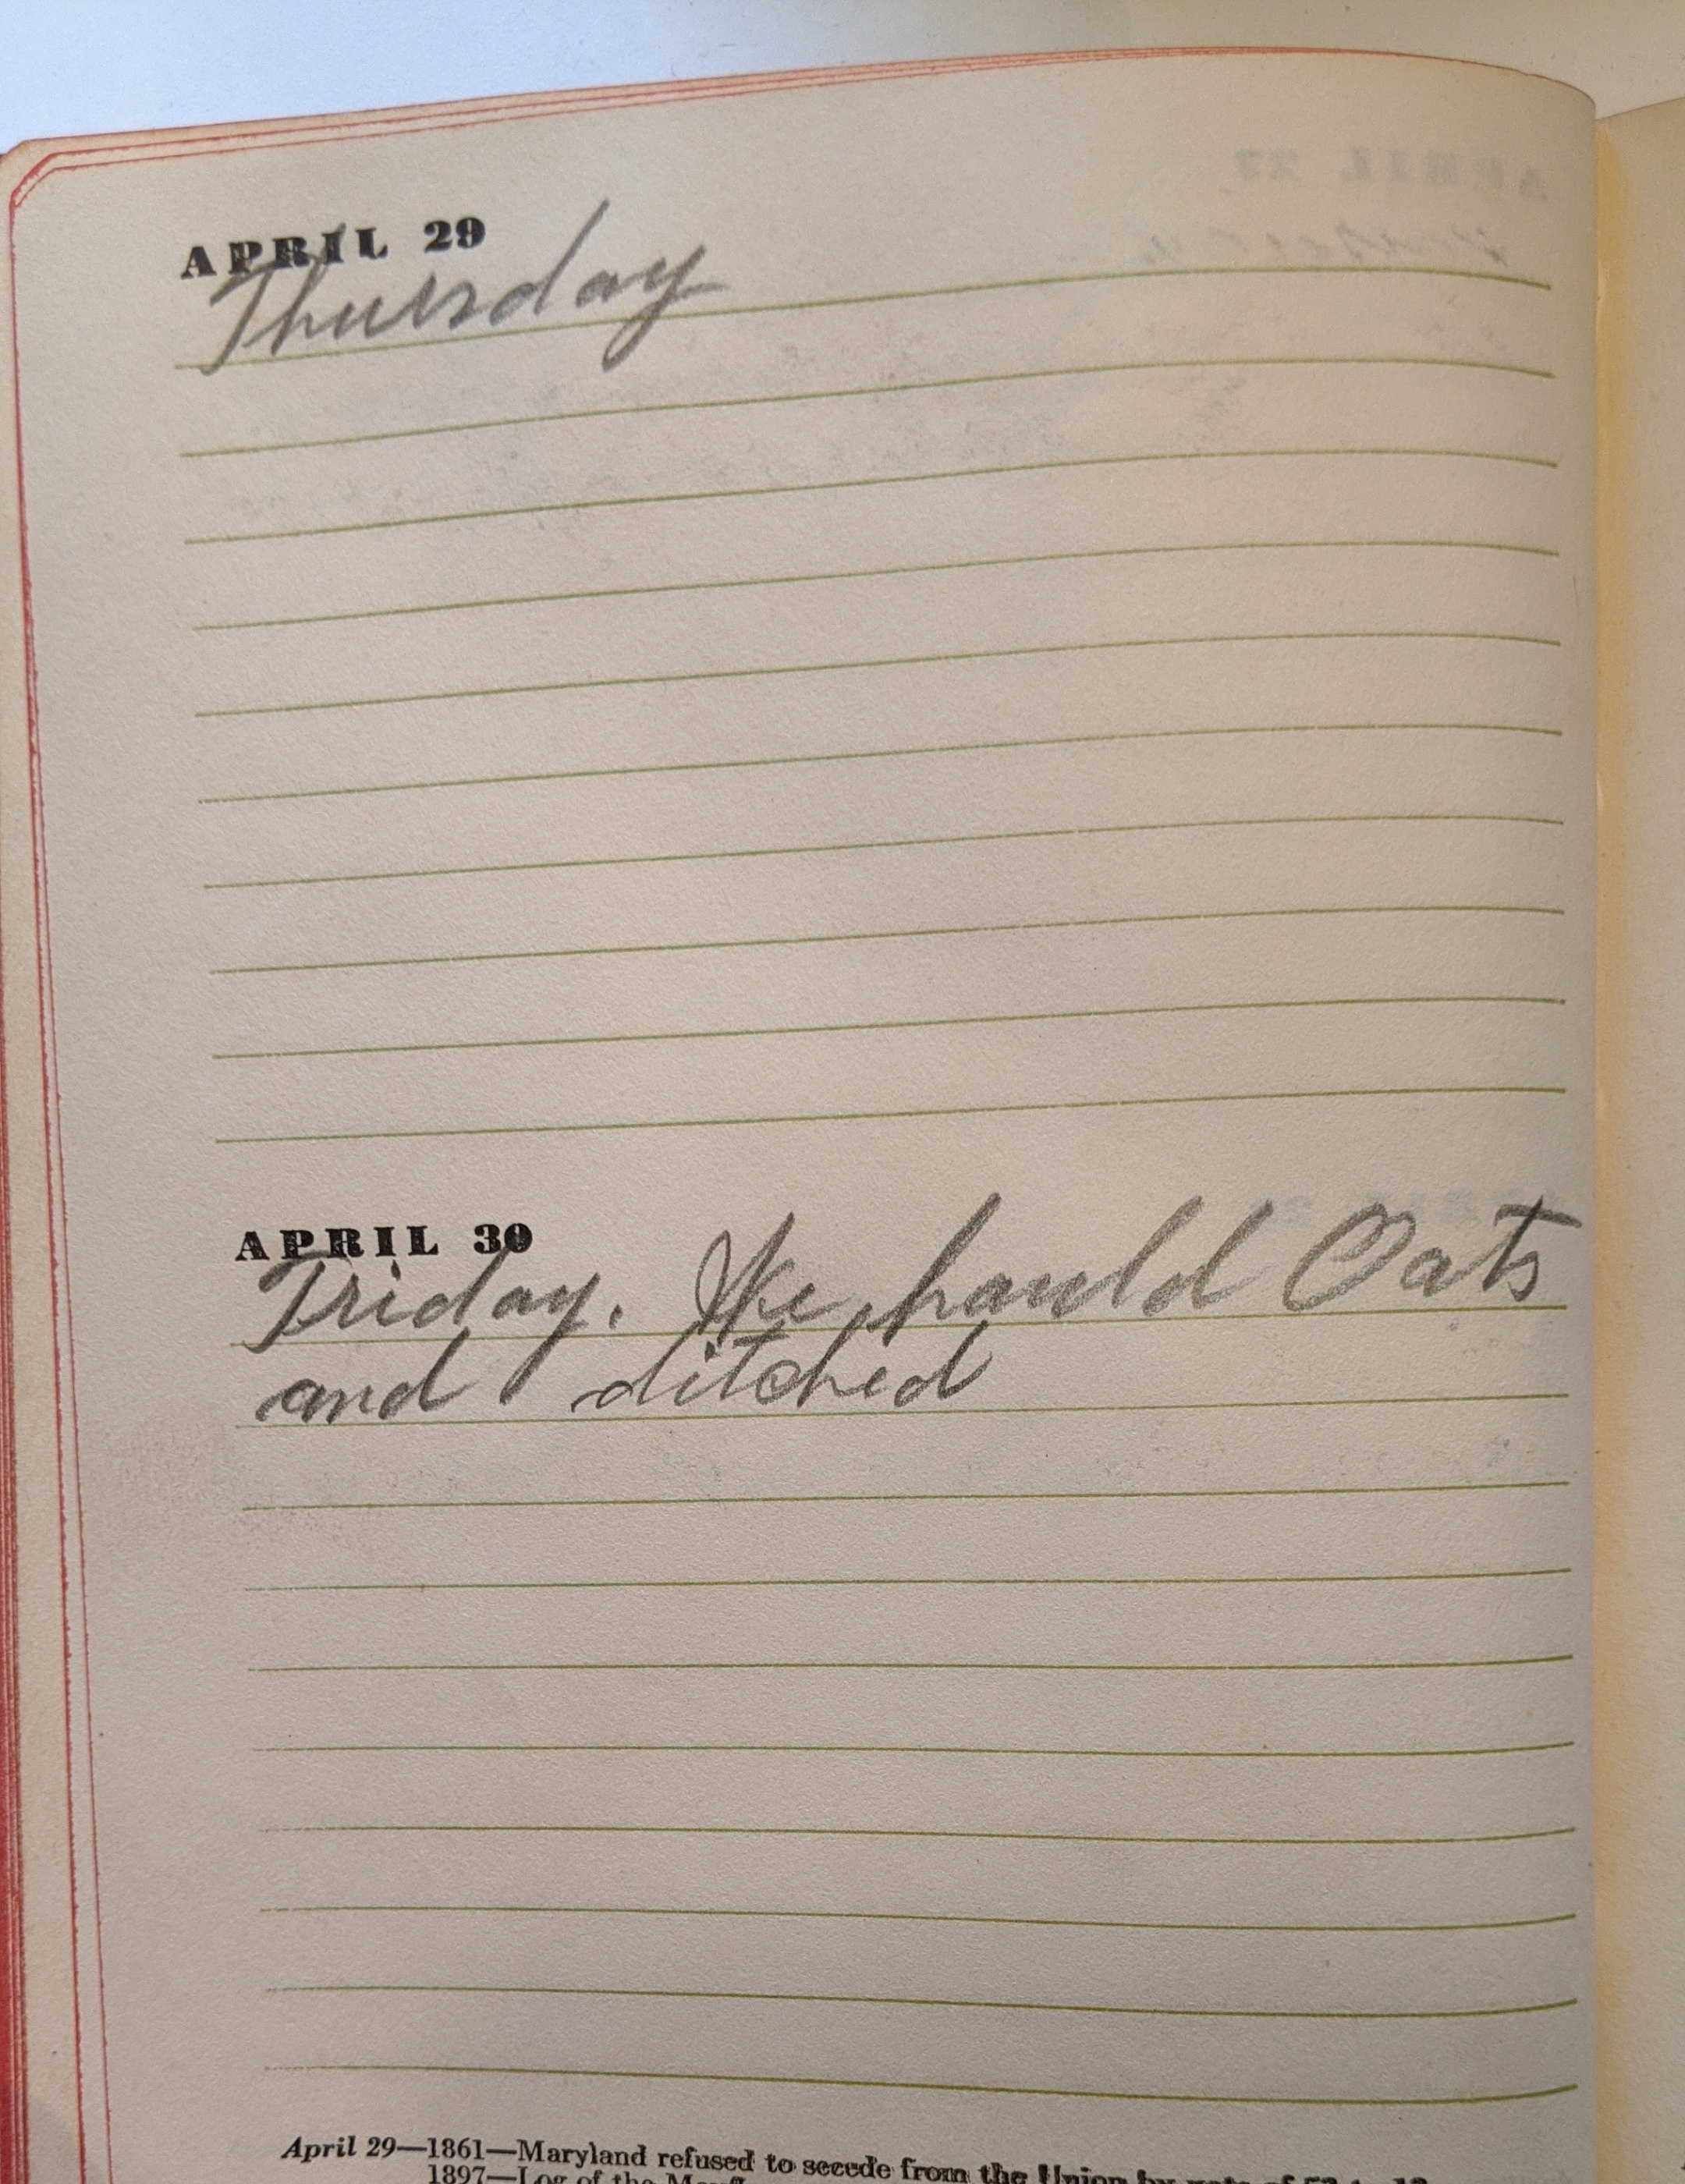 APRIL 29
Thursday
APRIL 30
Friday. Ike hauld Oats
and ditched
April 29—1861—Maryland refused to secede from the Union by vote of 53 to 13
1897—Log of the